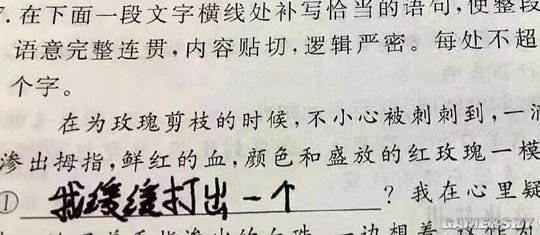 7.在下面一段文字横线处补写恰当的语句,使整段
语意完整连贯,内容贴切,逻辑严密。每处不超
个字。
在为玫瑰剪枝的时候,不小心被刺刺到,一滴
渗出拇指,鲜红的血,颜色和盛放的红玫瑰一模
① 我缓缓打出一个 ?我在心里疑
一边想着,这作为
GAMERSKY